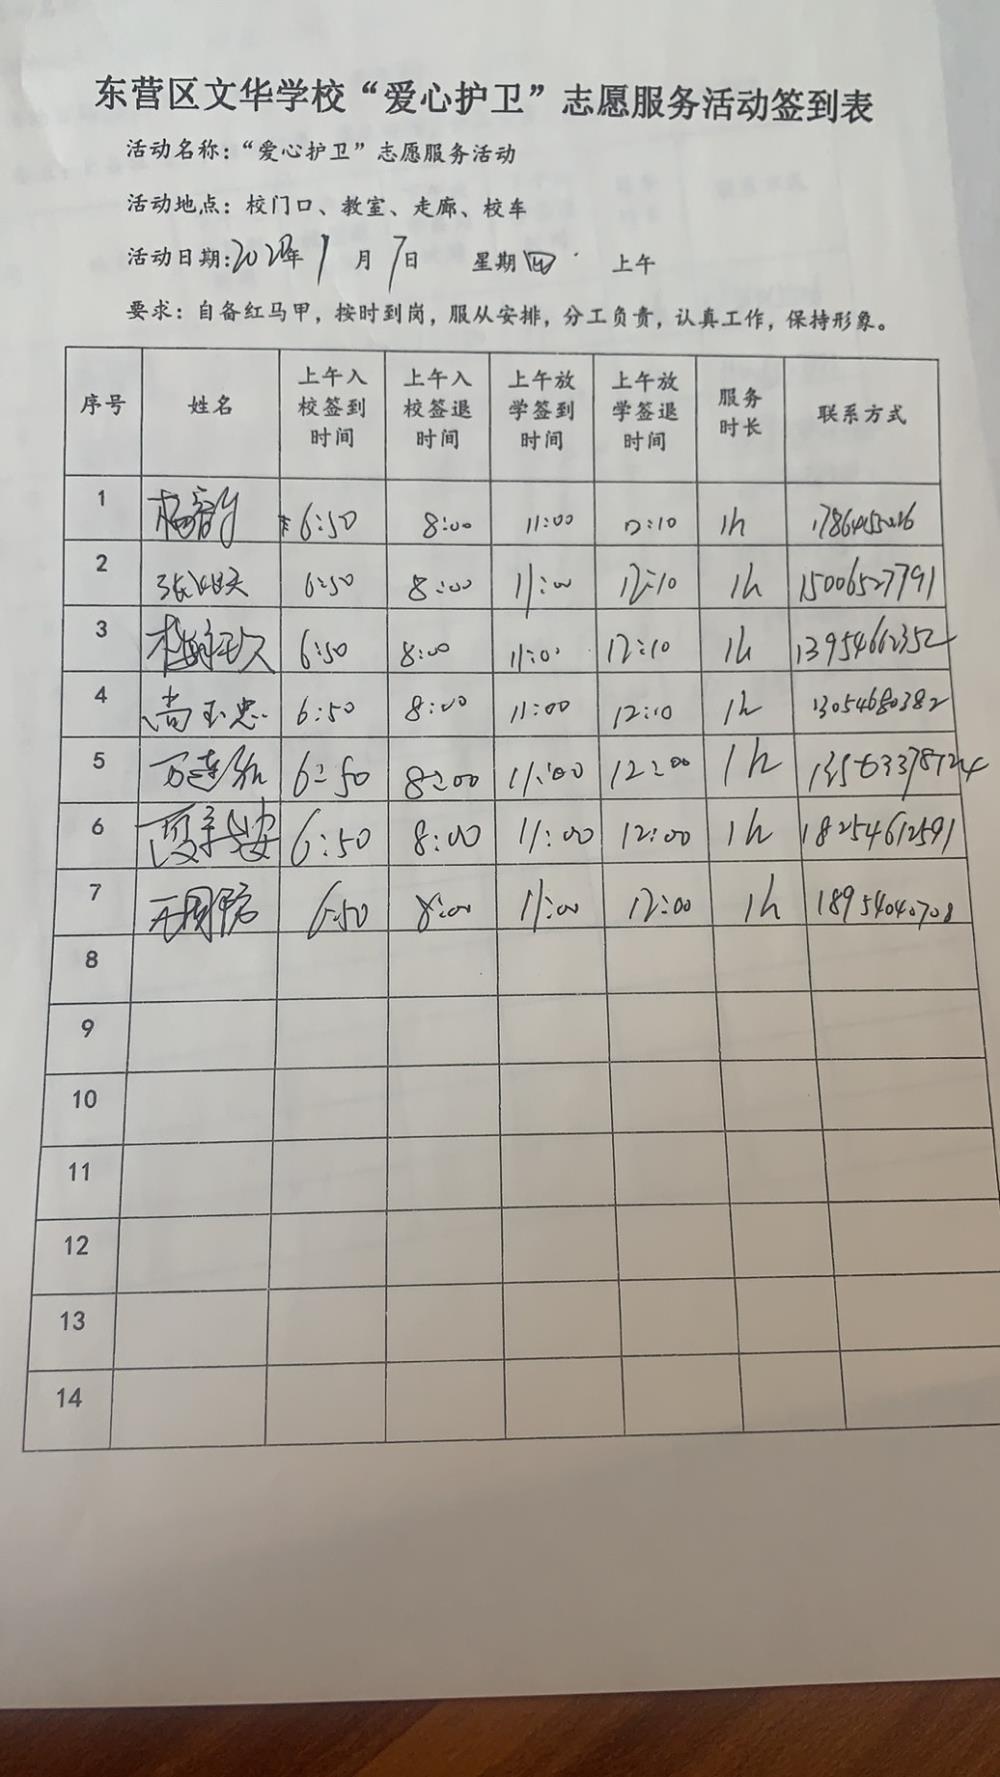 东营区文华学校“爱心护卫”志愿服务活动签到表
活动名称：“爱心护卫”志愿服务活动
活动地点：校门口、教室、走廊、校车
活动日期：年 1月 7日 星期四 上午
要求：自备红马甲，按时到岗，服从安排，分工负责，认真工作，保持形象。
序号 姓名 上午入校签到时间 上午入校签退时间 上午放学签到时间 上午放学签退时间 服务时长 联系方式
1 6:50 8:00 11:00 12:10 1h
2 6:50 8:00 11:00 12:10 1h 15006527791
3 6:50 8:00 11:00 12:10 1h 13954662352
4 尚玉忠 6:50 8:00 11:00 12:10 1h 13054680382
5 6:50 8:00 11:00 12:00 1h
6 6:50 8:00 11:00 12:00 1h 18254612591
7 6:50 8:00 11:00 12:00 1h 18954040708
8
9
10
11
12
13
14